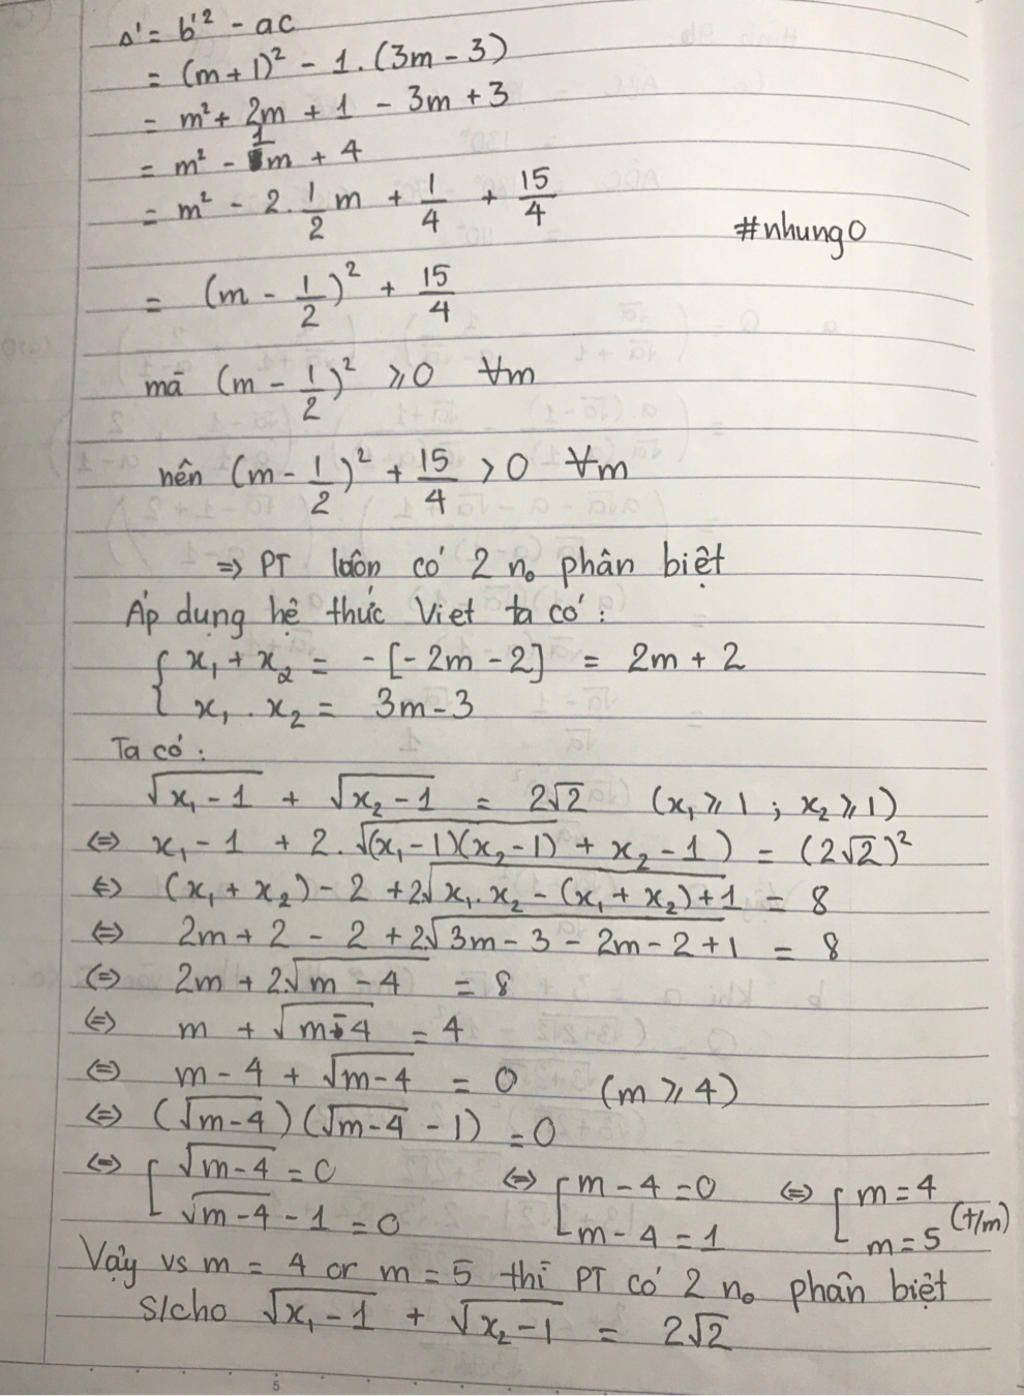 Δ' = b'² - ac
= (m+1)² - 1.(3m - 3)
= m² + 2m + 1 - 3m + 3
= m² - 1m + 4
= m² - 2.1/2 m + 1/4 + 15/4
#nhung0
= (m - 1/2)² + 15/4
mà (m - 1/2)² ⩾ 0 ∀m
nên (m - 1/2)² + 15/4 > 0 ∀m
=> PT luôn có 2 n₀ phân biệt
Áp dụng hệ thức Viet ta có:
{ x₁ + x₂ = -[-2m - 2] = 2m + 2
x₁ . x₂ = 3m - 3
Ta có:
√(x₁ - 1) + √(x₂ - 1) = 2√2 (x₁ ⩾ 1 ; x₂ ⩾ 1)
<=> x₁ - 1 + 2.√((x₁ - 1)(x₂ - 1)) + x₂ - 1) = (2√2)²
<=> (x₁ + x₂) - 2 + 2√(x₁.x₂ - (x₁ + x₂) + 1) = 8
<=> 2m + 2 - 2 + 2√(3m - 3 - 2m - 2 + 1) = 8
<=> 2m + 2√(m - 4) = 8
<=> m + √(m - 4) = 4
<=> m - 4 + √(m - 4) = 0 (m ⩾ 4)
<=> (√(m - 4))(√(m - 4) - 1) = 0
<=> [ √(m - 4) = 0 <=> [ m - 4 = 0 <=> [ m = 4
√(m - 4) - 1 = 0 m - 4 = 1 m = 5 (t/m)
Vậy vs m = 4 or m = 5 thì PT có 2 n₀ phân biệt
s/cho √(x₁ - 1) + √(x₂ - 1) = 2√2